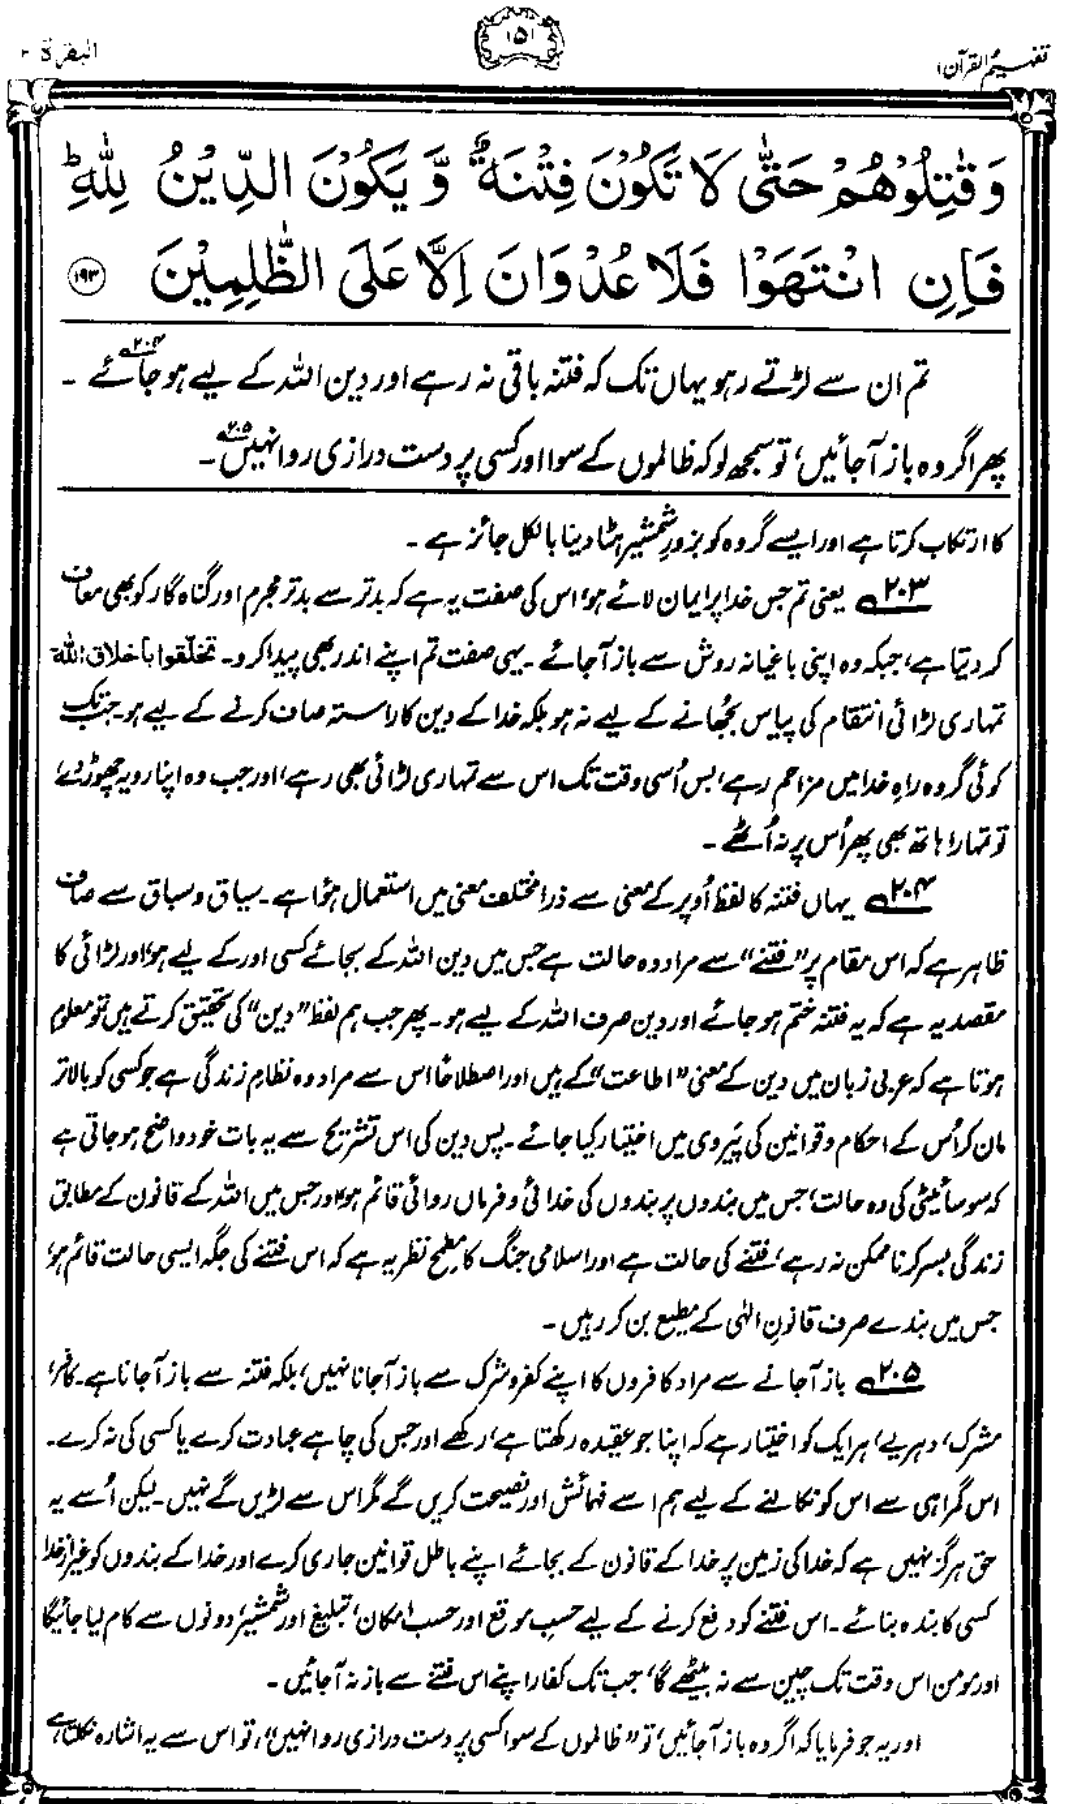 تفہیم القرآن ۱
۱۵۱
البقرۃ ۲
وَقٰتِلُوْهُمْ حَتّٰى لَا تَكُوْنَ فِتْنَةٌ وَّ يَكُوْنَ الدِّيْنُ لِلّٰهِ ؕ
فَاِنِ انْتَهَوْا فَلَا عُدْوَانَ اِلَّا عَلَى الظّٰلِمِيْنَ ۱۹۳
تم ان سے لڑتے رہو یہاں تک کہ فتنہ باقی نہ رہے اور دین اللہ کے لیے ہو جائے ۲۰۴۔
پھر اگر وہ باز آجائیں، تو سمجھ لو کہ ظالموں کے سوا اور کسی پر دست درازی روا نہیں ۲۰۵۔
کا ارتکاب کرتا ہے اور ایسے گروہ کو بزورِ شمشیر ہٹا دینا بالکل جائز ہے۔
۲۰۳؎ یعنی تم جس خدا پر ایمان لائے ہو، اس کی صفت یہ ہے کہ بدتر سے بدتر مجرم اور گناہ گار کو بھی معاف
کر دیتا ہے، جبکہ وہ اپنی باغیانہ روش سے باز آجائے۔ یہی صفت تم اپنے اندر بھی پیدا کرو۔ تخلّقوا باخلاق اللہ
تمہاری لڑائی انتقام کی پیاس بُجھانے کے لیے نہ ہو بلکہ خدا کے دین کا راستہ صاف کرنے کے لیے ہو۔ جب تک
کوئی گروہ راہِ خدا میں مزاحم رہے، بس اُسی وقت تک اس سے تمہاری لڑائی بھی رہے، اور جب وہ اپنا رویہ چھوڑ دے،
تو تمہارا ہاتھ بھی پھر اُس پر نہ اُٹھے۔
۲۰۴؎ یہاں فتنہ کا لفظ اُوپر کے معنی سے ذرا مختلف معنی میں استعمال ہوا ہے۔ سیاق و سباق سے صاف
ظاہر ہے کہ اس مقام پر ”فتنے“ سے مراد وہ حالت ہے جس میں دین اللہ کے بجائے کسی اور کے لیے ہو، اور لڑائی کا
مقصد یہ ہے کہ یہ فتنہ ختم ہو جائے اور دین صرف اللہ کے لیے ہو۔ پھر جب ہم لفظ ”دین“ کی تحقیق کرتے ہیں تو معلوم
ہوتا ہے کہ عربی زبان میں دین کے معنی ”اطاعت“ کے ہیں اور اصطلاحاً اس سے مراد وہ نظامِ زندگی ہے جو کسی کو بالاتر
مان کر اُس کے احکام و قوانین کی پَیروی میں اختیار کیا جائے۔ پس دین کی اس تشریح سے یہ بات خود واضح ہو جاتی ہے
کہ سوسائیٹی کی وہ حالت، جس میں بندوں پر بندوں کی خدائی و فرماں روائی قائم ہو، اور جس میں اللہ کے قانون کے مطابق
زندگی بسر کرنا ممکن نہ رہے، فتنے کی حالت ہے اور اسلامی جنگ کا مطمح نظر یہ ہے کہ اس فتنے کی جگہ ایسی حالت قائم ہو،
جس میں بندے صرف قانونِ الٰہی کے مطیع بن کر رہیں۔
۲۰۵؎ باز آجانے سے مراد کافروں کا اپنے کفر و شرک سے باز آجانا نہیں، بلکہ فتنہ سے باز آجانا ہے۔ کافر،
مشرک، دہریے، ہر ایک کو اختیار ہے کہ اپنا جو عقیدہ رکھتا ہے، رکھے اور جس کی چاہے عبادت کرے یا کسی کی نہ کرے۔
اس گمراہی سے اس کو نکالنے کے لیے ہم اسے فہمائش اور نصیحت کریں گے مگر اس سے لڑیں گے نہیں۔ لیکن اُسے یہ
حق ہرگز نہیں ہے کہ خدا کی زمین پر خدا کے قانون کے بجائے اپنے باطل قوانین جاری کرے اور خدا کے بندوں کو غیر از خدا
کسی کا بندہ بنائے۔ اس فتنے کو دفع کرنے کے لیے حسبِ موقع اور حسبِ امکان، تبلیغ اور شمشیر، دونوں سے کام لیا جائیگا
اور مومن اس وقت تک چین سے نہ بیٹھے گا، جب تک کفار اپنے اس فتنے سے باز نہ آجائیں۔
اور یہ جو فرمایا کہ اگر وہ باز آجائیں، تو ”ظالموں کے سوا کسی پر دست درازی روا نہیں“، تو اس سے یہ اشارہ نکلتا ہے